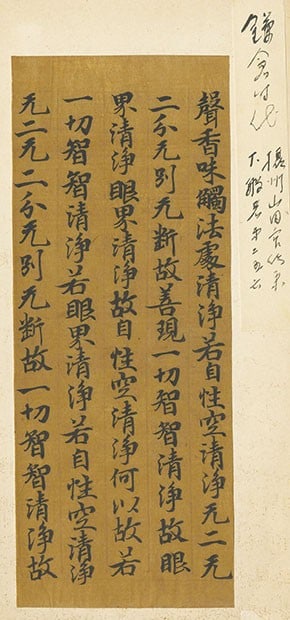 鎌倉时代
摂州山田
大般若才二五七
聲香味觸法處清淨若自性空清淨无二无
二分无別无斷故善現一切智智清淨故眼
界清淨眼界清淨故自性空清淨何以故若
一切智智清淨若眼界清淨若自性空清淨
无二无二分无別无斷故一切智智清淨故